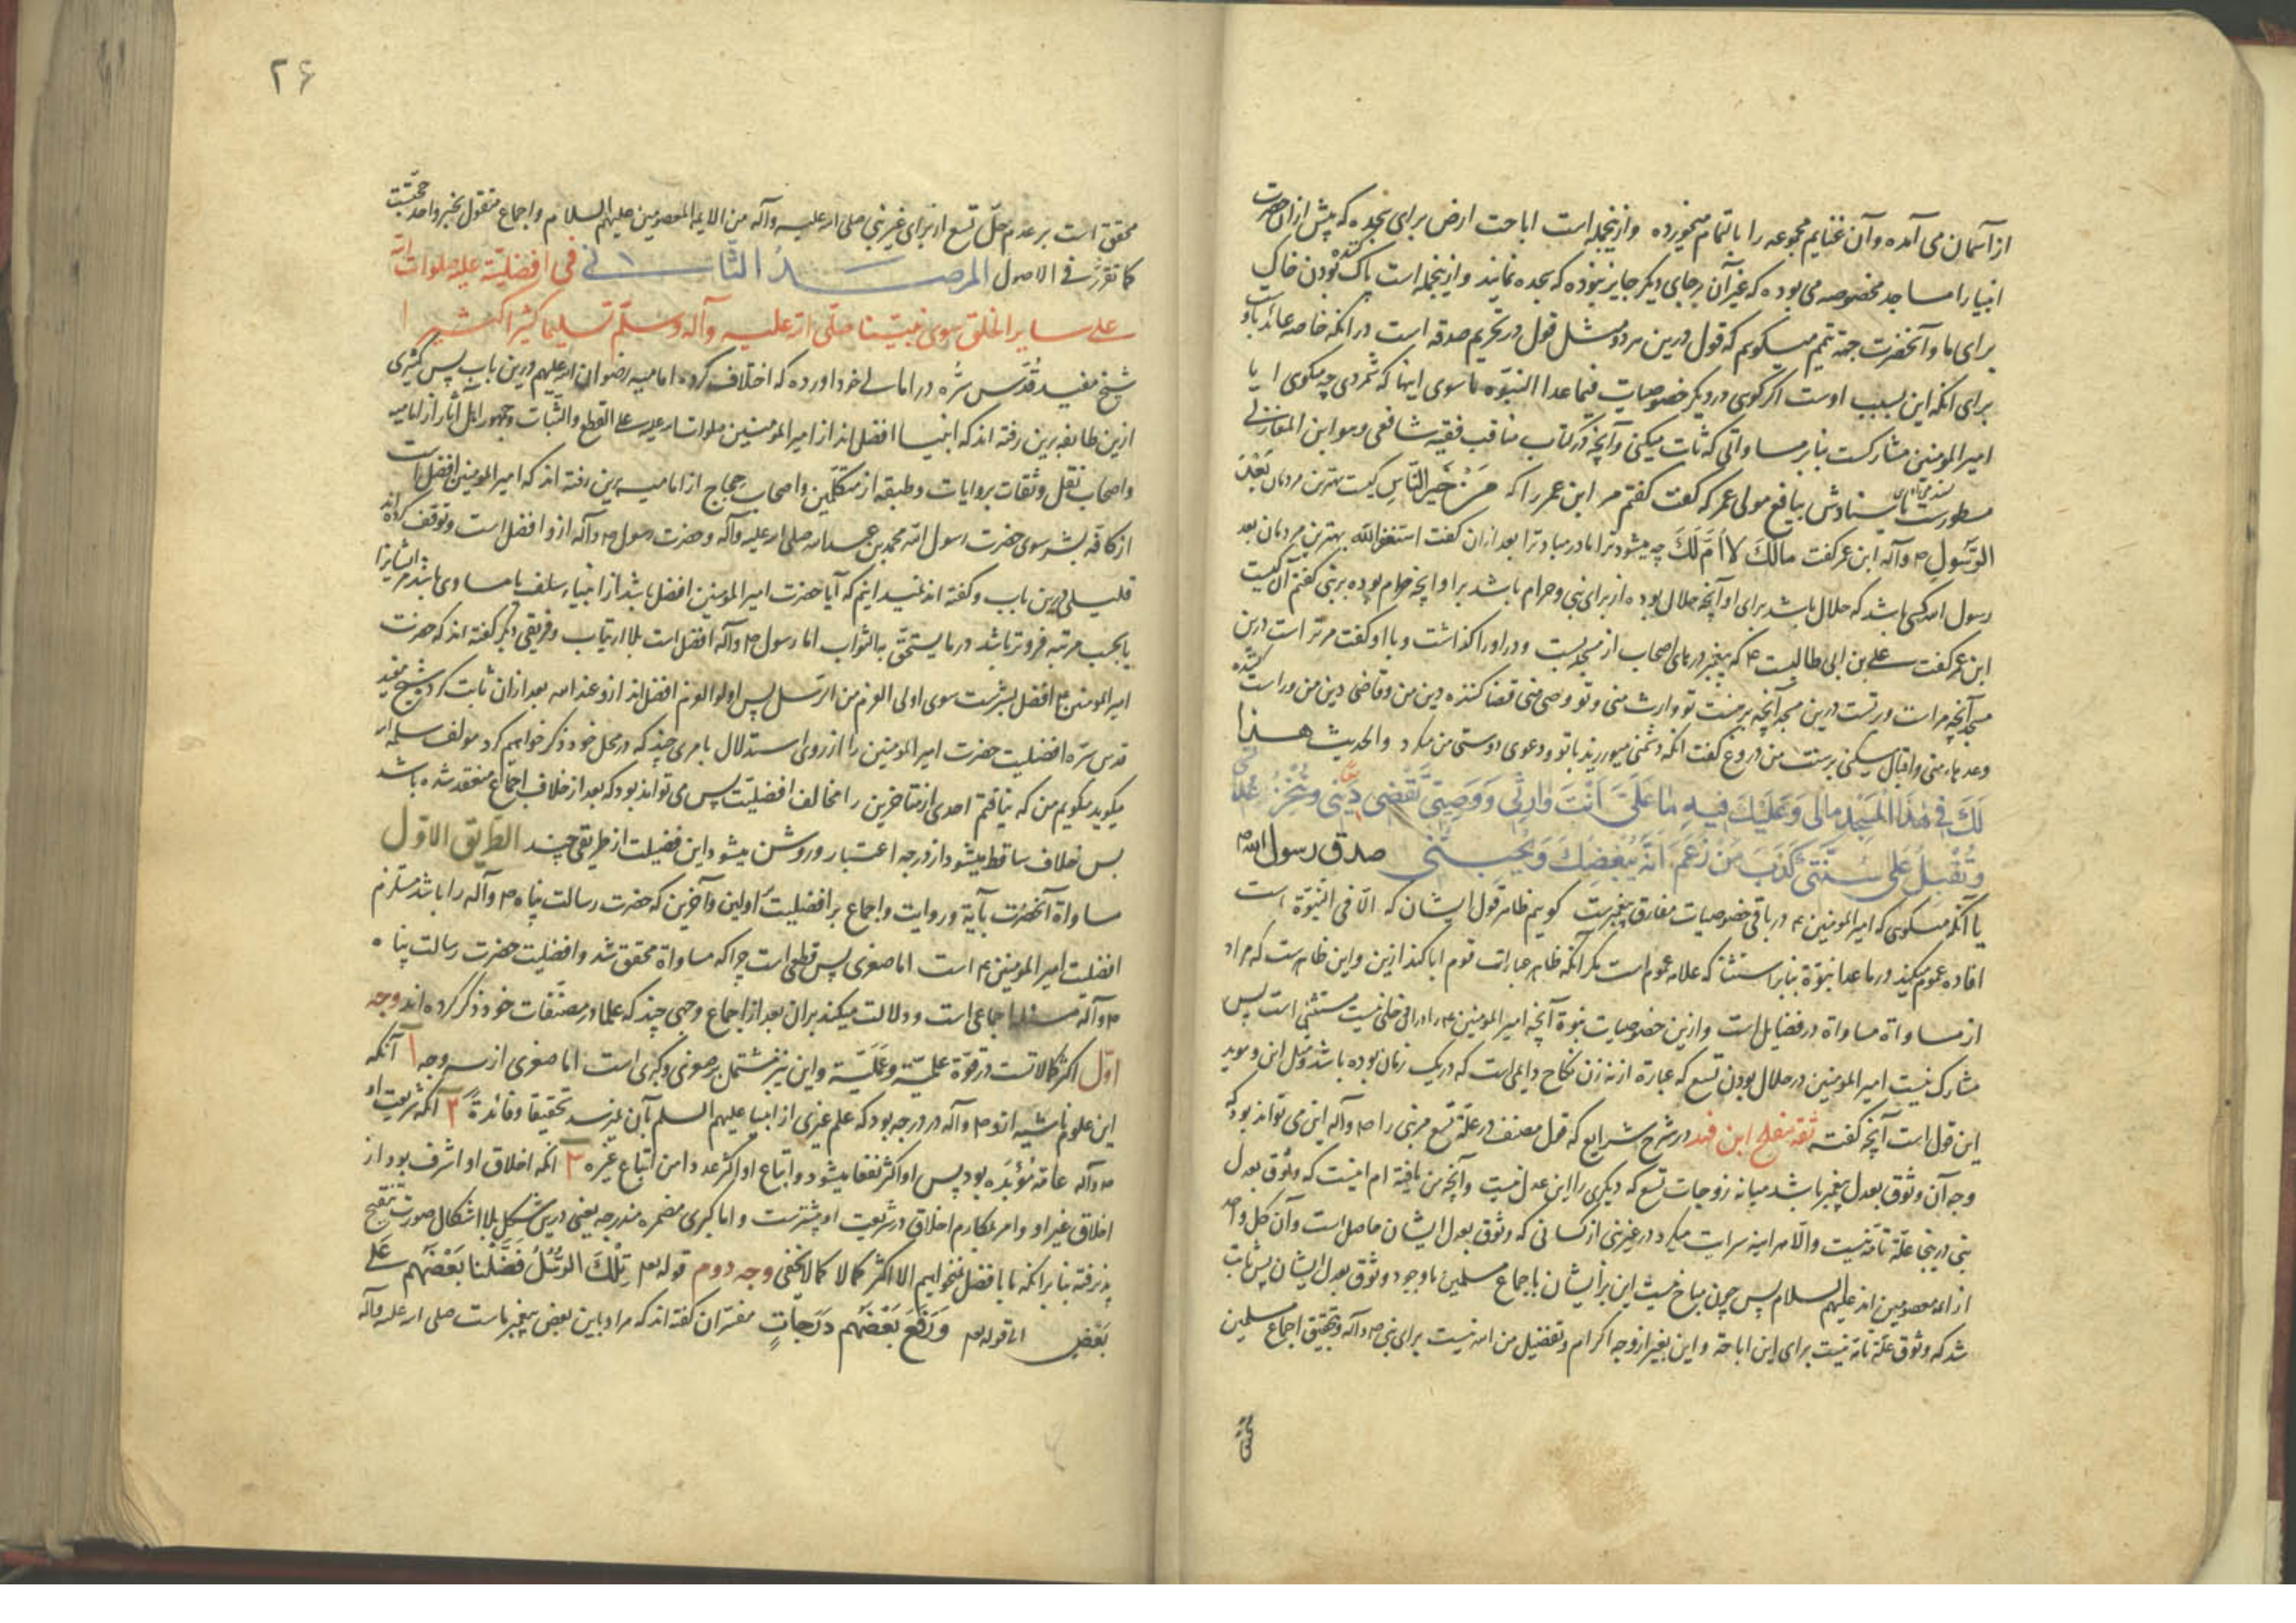 از آسمان می آمده و آن غنایم مجموعه را بالتمام میخورده و ازینجمله است اباحت ارض برای سجده که پیش از آن حضرت
انبیا را مساجد مخصوصه می بوده که غیر آن بر جای دیگر جایز نبوده که سجده نمایند و ازینجمله است پاک کننده بودن خاک
برای ما و آنحضرت جهة تیمم میگویم که قول درین هر دو مثل قول در تحریم صدقه است در آنکه خاصه عائد باو
برای آنکه این بسبب اوست اگر گوی در دیگر خصوصیات فیما عدا النبوّه ما سوی اینها که شمردی چه میگوی ایا
امیر المومنین مشارکست بنابر مساواتی که ثابت میکنی و آنچه در کتاب مناقب فقیه شافعی و هو ابن المغازلی
مسطورست باسنادش بنافع مولی عمر که گفت گفتم مر ابن عمر را که مَنْ خَیرُ النّاسِ کیست بهترین مردمان بَعْدَ
الرّسُولِ ص و آله ابن عمر گفت مالَکَ لا اُمَّ لَکَ چه میشود ترا مادر مباد ترا بعد ازان گفت استغفر الله بهترین مردمان بعد
رسول الله کسی باشد که حلال باشد برای او آنچه حلال بوده از برای نبی و حرام باشد بر او آنچه حرام بوده بر نبی گفتم آن کیست
ابن عمر گفت علی بن ابی طالبست ع که پیغمبر درهای اصحاب از مسجد بست و در او را گذاشت و با او گفت مر تر است درین
مسجد آنچه مراست و بر تست درین مسجد آنچه بر منست تو وارث منی و تو وصی منی قضا کننده دین من و قاضی دین من وراست کننده
وعدهاء منی و اقبال میکنی بر سنت من دروغ گفت آنکه دشمنی میورزند با تو و دعوی دوستی من میکرد و الحدیث هذا
لَکَ فی هٰذَا المَسْجِدِ مالی وَ عَلَیْکَ فیهِ ما عَلَیَّ اَنْتَ وارِثی وَ وَصِیّی تَقْضی دَیْنی وَ تُنْجِزُ عِدا
وَ تُقْبِلُ عَلی سُنَّتی کَذَبَ مَنْ زَعَمَ اَنَّهُ یُبْغِضُکَ وَ یُحِبُّنی صدق رسول الله ص
یا آنکه میگوی که امیر المومنین ع در باقی خصوصیات مفارق پیغمبرست گویم ظاهر قول ایشان که الّا فی النبوّة است
افاده عموم میکند در ما عدا نبوّة بنابر استثنا که علامه عموم است مگر آنکه ظاهر عبارات قوم ابا کند ازین و این ظاهرست که مراد
از مساواة مساواة در فضایل است و ازین خصوصیات نبوة آنچه امیر المومنین ع را در آن دخلی نیست مستثنی است پس
مشارک نیست امیر المومنین در حلال بودن تسع که عبارة از نه زن نکاح دایمی است که در یک زمان بوده باشد و مثل این و موید
این قول است آنچه گفته ثقه مفلح ابن فهد در شرح شرایع که قول مصنف در علّة تسع مر نبی را ص و آله این می تواند بود که
وجه آن وثوق بعدل پیغمبر باشد میانه زوجات تسع که دیگری را این عدل نیست و آنچه من یافته ام اینست که وثوق بعدل
نبی درینجا علّة تامّه نیست و الّا هر آینه سرایت میکرد در غیر نبی از کسانی که وثوق بعدل ایشان حاصل است و آن کل واحد
از ائمه معصومین اند علیهم السلام پس چون مباح نیست این برایشان باجماع مسلمین با وجود وثوق بعدل ایشان پس ثابت
شد که وثوق علّة تامه نیست برای این اباحة و این بغیر از وجه اکرام و تفضیل من الله نیست برای نبی ص و آله و بتحقیق اجماع مسلمین
۲۶
محقق است بر عدم حلّ تسع از برای غیر نبی صلی الله علیه و آله من الایمة المعصومین علیهم السلام و اجماع منقول بخبر واحد حجّتست
کما تقرّر فی الاصول المرصدُ الثّانی فی افضلیّته علیه صلوات الله
علی سایر الخلق سوی نبیّنا صلّی الله علیه و آله و سلّم تسلیما کثیرا کثیرا
شیخ مفید قدّس سرّه در امالی خود آورده که اختلاف کرده امامیه رضوان الله علیهم درین باب پس کثیری
ازین طایفه برین رفته اند که انبیا افضل اند از امیر المومنین صلوات الله علیه علی القطع و الثّبات و جمهور اهل آثار از امامیه
و اصحاب نقل و ثقات بروایات و طبقه از متکلّمین و اصحاب حِجاج از امامیه برین رفته اند که امیر المومنین افضل است
از کافّه بشر سوی حضرت رسول الله محمد بن عبدالله صلی الله علیه و آله و حضرت رسول ص و آله ازو افضل است و توقف کرده اند
قلیلی درین باب و گفته اند نمیدانیم که آیا حضرت امیر المومنین افضل باشد از انبیاء سلف یا مساوی باشد مر ایشانرا
یا بحسب مرتبه فروتر باشد در ما یستحقّ به الثواب امّا رسول ص و آله افضل است بلا ارتیاب و فریقی دیگر گفته اند که حضرت
امیر المومنین ع افضل بشرست سوی اولی العزم من الرّسل پس اولو العزم افضل اند ازو عند الله بعد ازان ثابت کرده شیخ مفید
قدس سرّه افضلیت حضرت امیر المومنین را از روی استدلال بامری چند که در محل خود ذکر خواهیم کرد مولف سلمه الله
میگوید میگویم من که نیافتم احدی از متاخرین را مخالف افضلیّت پس می تواند بود که بعد از خلاف اجماع منعقد شده باشد
پس خلاف ساقط میشود از درجه اعتبار و روشن میشود این فضیلت از طریقی چند الطریق الاوّل
مساواة آنحضرت بآیة و روایت و اجماع بر افضلیت اولین و آخرین که حضرت رسالت پناه ص و آله را باشد مستلزم
افضلت امیر المومنین ع است اما صغری پس قطعی است چرا که مساواة محقق شد و افضلیت حضرت رسالت پناه
ص و آله مسئله اجماعی است و دلالت میکند بران بعد از اجماع وجهی چند که علما در مصنّفات خود ذکر کرده اند وجه
اوّل اکثر کمالاتست در قوّة علمیّة و عَمَلیّة و این نیز مشتمل بر صغری و کبری است اما صغری از سه وجه ۱ آنکه
این علوم ناشیه ازو ص و آله در درجه بود که علم غیری از انبیا علیهم السلم بآن نمیرسد تحقیقا و فائدةً ۲ آنکه شریعت او
ص و آله عامّه مُؤبّده بود پس او اکثر نفعا میشود و اتباع او اکثر عددا من اتباع غیره ۳ آنکه اخلاق او اشرف بود از
اخلاق غیر او و امر بمکارم اخلاق در شریعت او بیشترست و اما کبری مضمره مندرجه یعنی درین شکل بلا اشکال صورت تنقیح
پذیرفته بنابر آنکه ما بافضل نمیخواهیم الا اکثر کمالا کما لا یخفی وجه دوم قوله تعم تِلْکَ الرُّسُلُ فَضَّلْنا بَعْضَهُم عَلی
بَعْضٍ الی قوله تعم وَ رَفَعَ بَعْضَهُم دَرَجاتٍ مفسّران گفته اند که مراد باین بعض پیغمبر ماست صلی الله علیه و آله